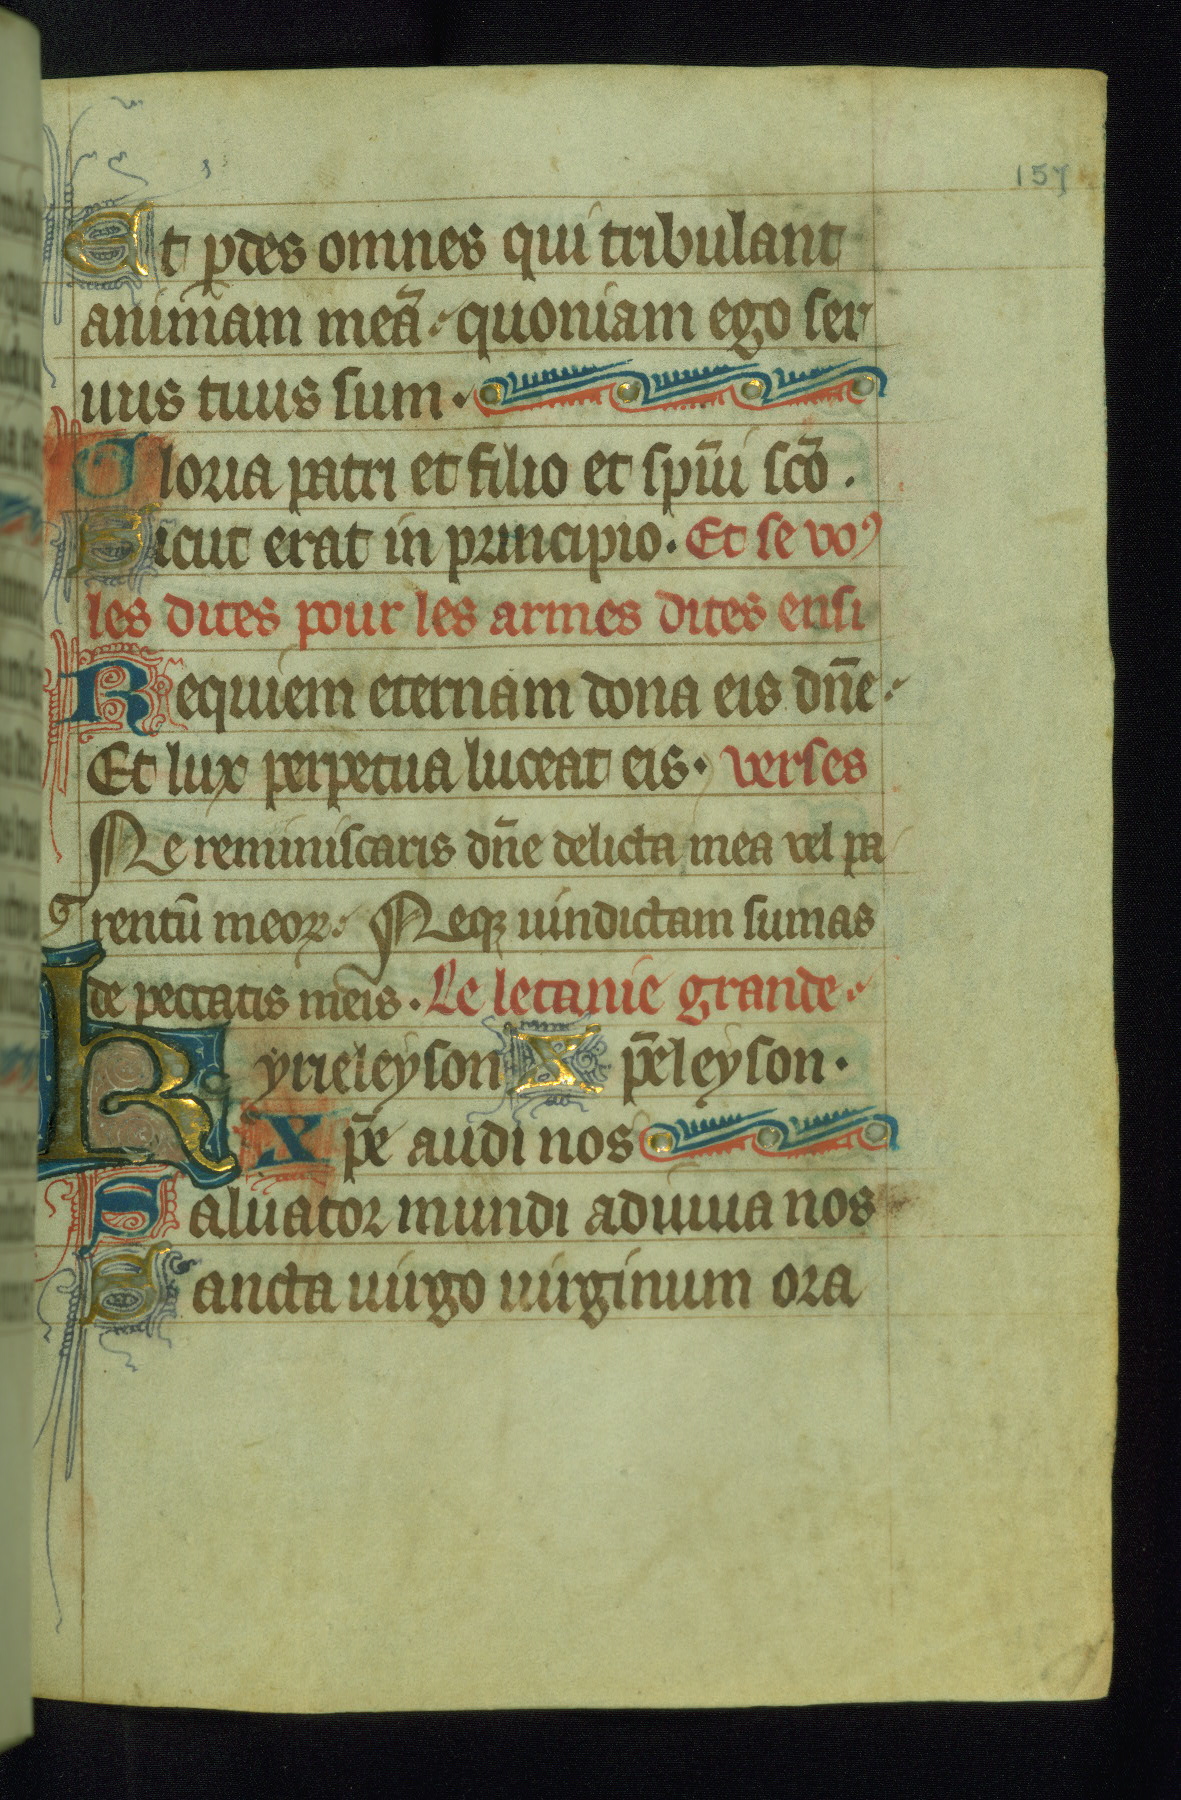 157
Et ꝑdes omnes qui tribulant
animam meā quoniam ego ser
uus tuus sum.
Gloria patri et filio et spiritui scō.
Sicut erat in principio. Et se voꝰ
les dites pour les armes dites ensi
Requiem eternam dona eis dn̄e
Et lux perpetua luceat eis. verses
Ne reminiscaris dn̄e delicta mea vel pa
rentū meoꝝ. Neqꝫ uindictam sumas
de peccatis meis. Le letanie grande
Kyrieleyson Xp̄eleyson.
Xp̄e audi nos
Saluator mundi adiuua nos
Sancta uirgo uirginum ora